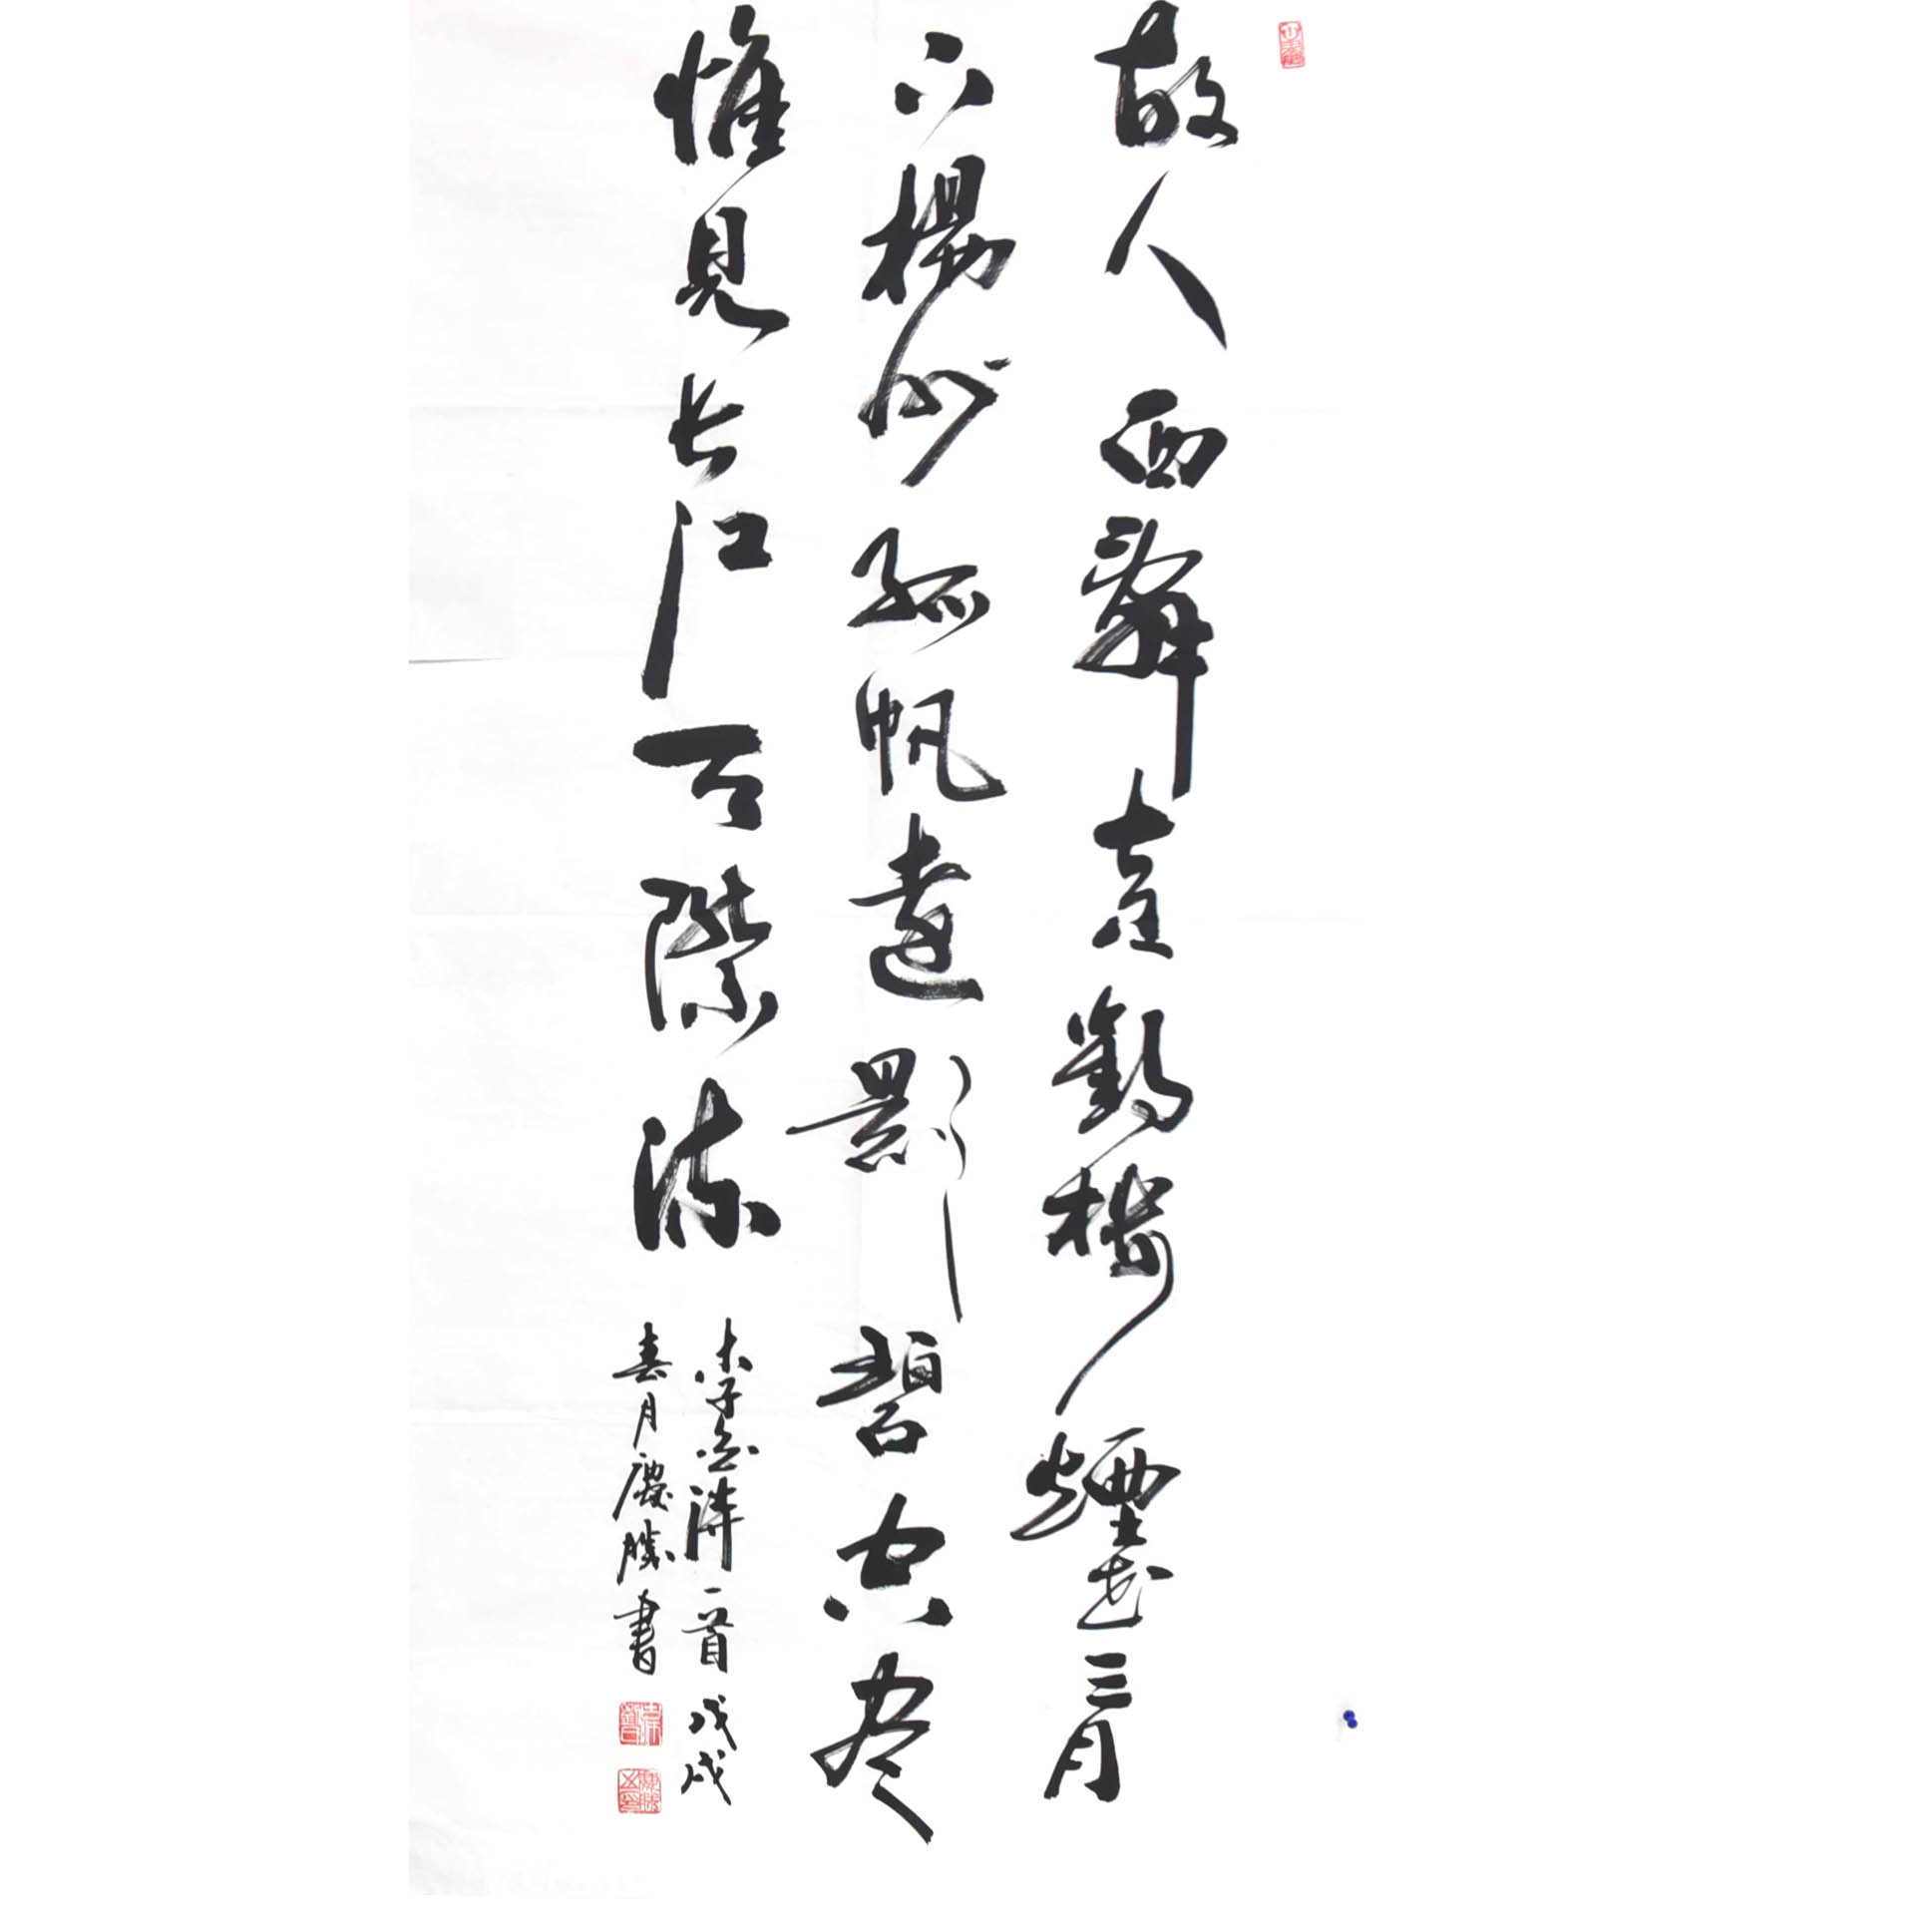 故人西辭黃鶴樓煙花三月
下楊州孤帆遠影碧空尽
惟見長江天際流
李白詩一首戊戌
春月慶勝書